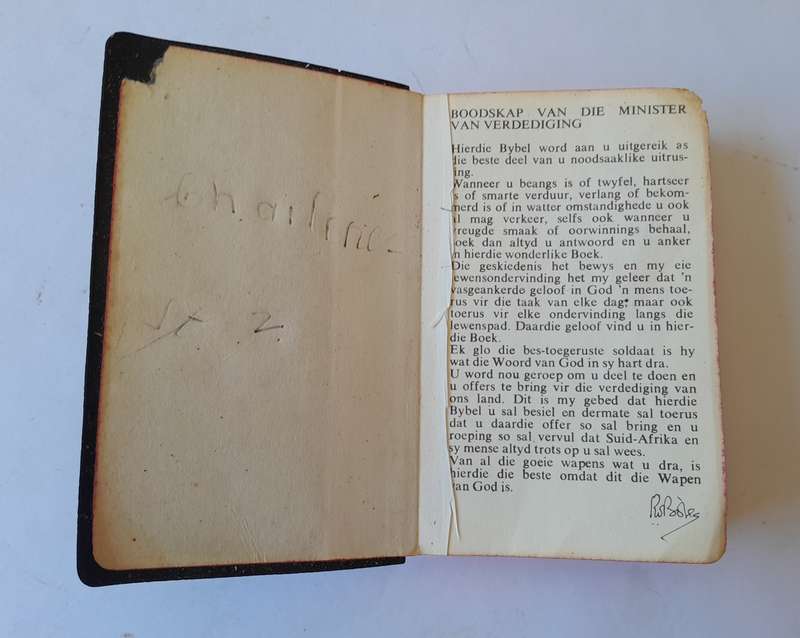 St 2.
BOODSKAP VAN DIE MINISTER
VAN VERDEDIGING
Hierdie Bybel word aan u uitgereik as
die beste deel van u noodsaaklike uitrus-
ing.
Wanneer u beangs is of twyfel, hartseer
is of smarte verduur, verlang of bekom-
merd is of in watter omstandighede u ook
al mag verkeer, selfs ook wanneer u
vreugde smaak of oorwinnings behaal,
soek dan altyd u antwoord en u anker
in hierdie wonderlike Boek.
Die geskiedenis het bewys en my eie
lewensondervinding het my geleer dat 'n
vasgeankerde geloof in God 'n mens toe-
rus vir die taak van elke dag: maar ook
toerus vir elke ondervinding langs die
lewenspad. Daardie geloof vind u in hier-
die Boek.
Ek glo die bes-toegeruste soldaat is hy
wat die Woord van God in sy hart dra.
U word nou geroep om u deel te doen en
u offers te bring vir die verdediging van
ons land. Dit is my gebed dat hierdie
Bybel u sal besiel en dermate sal toerus
dat u daardie offer so sal bring en u
roeping so sal vervul dat Suid-Afrika en
sy mense altyd trots op u sal wees.
Van al die goeie wapens wat u dra, is
hierdie die beste omdat dit die Wapen
van God is.